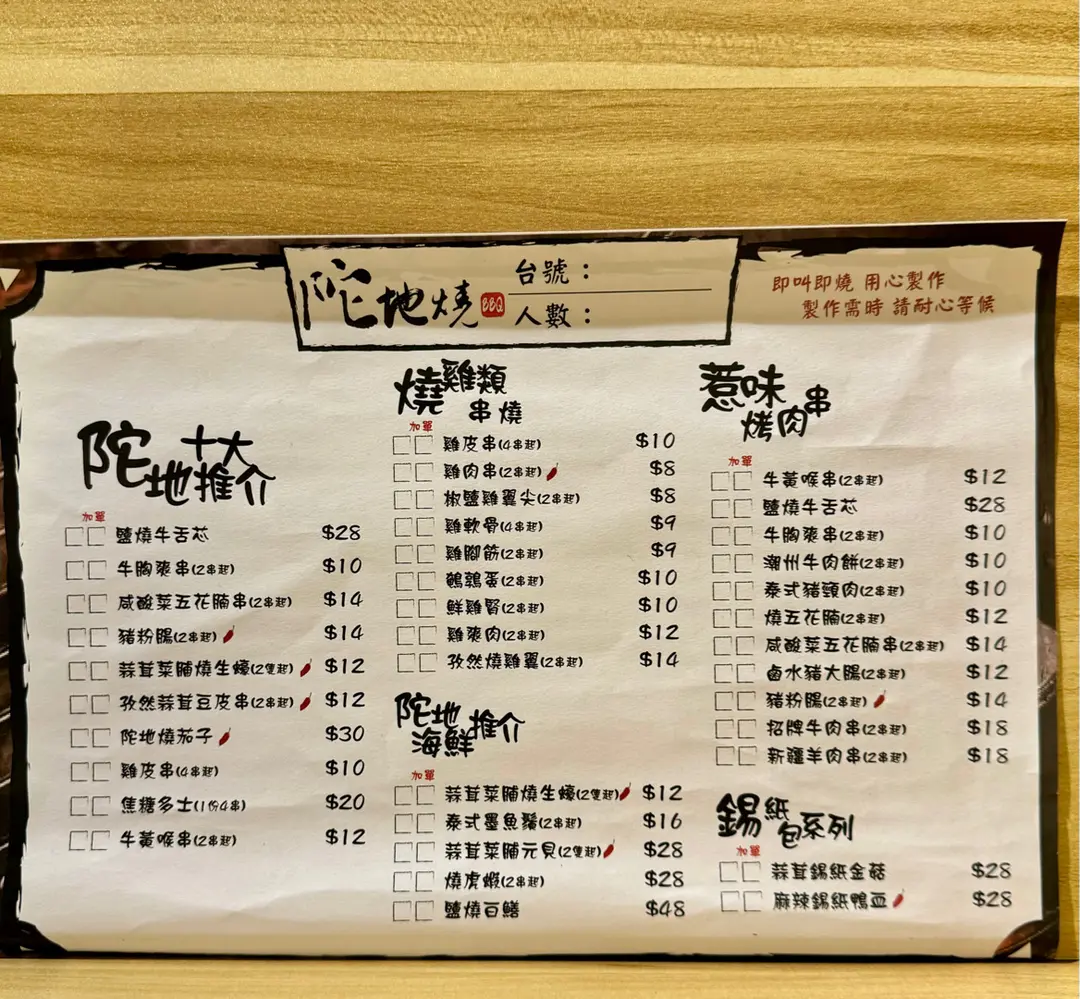 陀地燒 BBQ
台號：
人數：
即叫即燒 用心製作
製作需時 請耐心等候
陀地十大推介
加單
鹽燒牛舌芯 $28
牛胸爽串(2串起) $10
咸酸菜五花腩串(2串起) $14
豬粉腸(2串起) $14
蒜茸菜脯燒生蠔(2隻起) $12
孜然蒜茸豆皮串(2串起) $12
陀地燒茄子 $30
雞皮串(4串起) $10
焦糖多士(1份4串) $20
牛黃喉串(2串起) $12
燒雞類串燒
加單
雞皮串(4串起) $10
雞肉串(2串起) $8
椒鹽雞翼尖(2串起) $8
雞軟骨(4串起) $9
雞腳筋(2串起) $9
鵪鶉蛋(2串起) $10
鮮雞腎(2串起) $10
雞爽肉(2串起) $12
孜然燒雞翼(2串起) $14
陀地海鮮推介
加單
蒜茸菜脯燒生蠔(2隻起) $12
泰式墨魚鬚(2串起) $16
蒜茸菜脯元貝(2隻起) $28
燒虎蝦(2串起) $28
鹽燒白鱔 $48
惹味烤肉串
加單
牛黃喉串(2串起) $12
鹽燒牛舌芯 $28
牛胸爽串(2串起) $10
潮州牛肉餅(2串起) $10
泰式豬頸肉(2串起) $10
燒五花腩(2串起) $12
咸酸菜五花腩串(2串起) $14
鹵水豬大腸(2串起) $12
豬粉腸(2串起) $14
招牌牛肉串(2串起) $18
新疆羊肉串(2串起) $18
錫紙包系列
加單
蒜茸錫紙金菇 $28
麻辣錫紙鴨血 $28